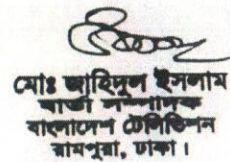 মোঃ জাহিদুল ইসলাম
বার্তা সম্পাদক
বাংলাদেশ টেলিভিশন
রামপুরা, ঢাকা।